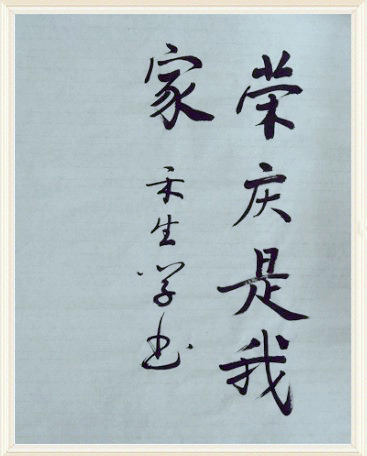 荣庆是我
家
禾生学书